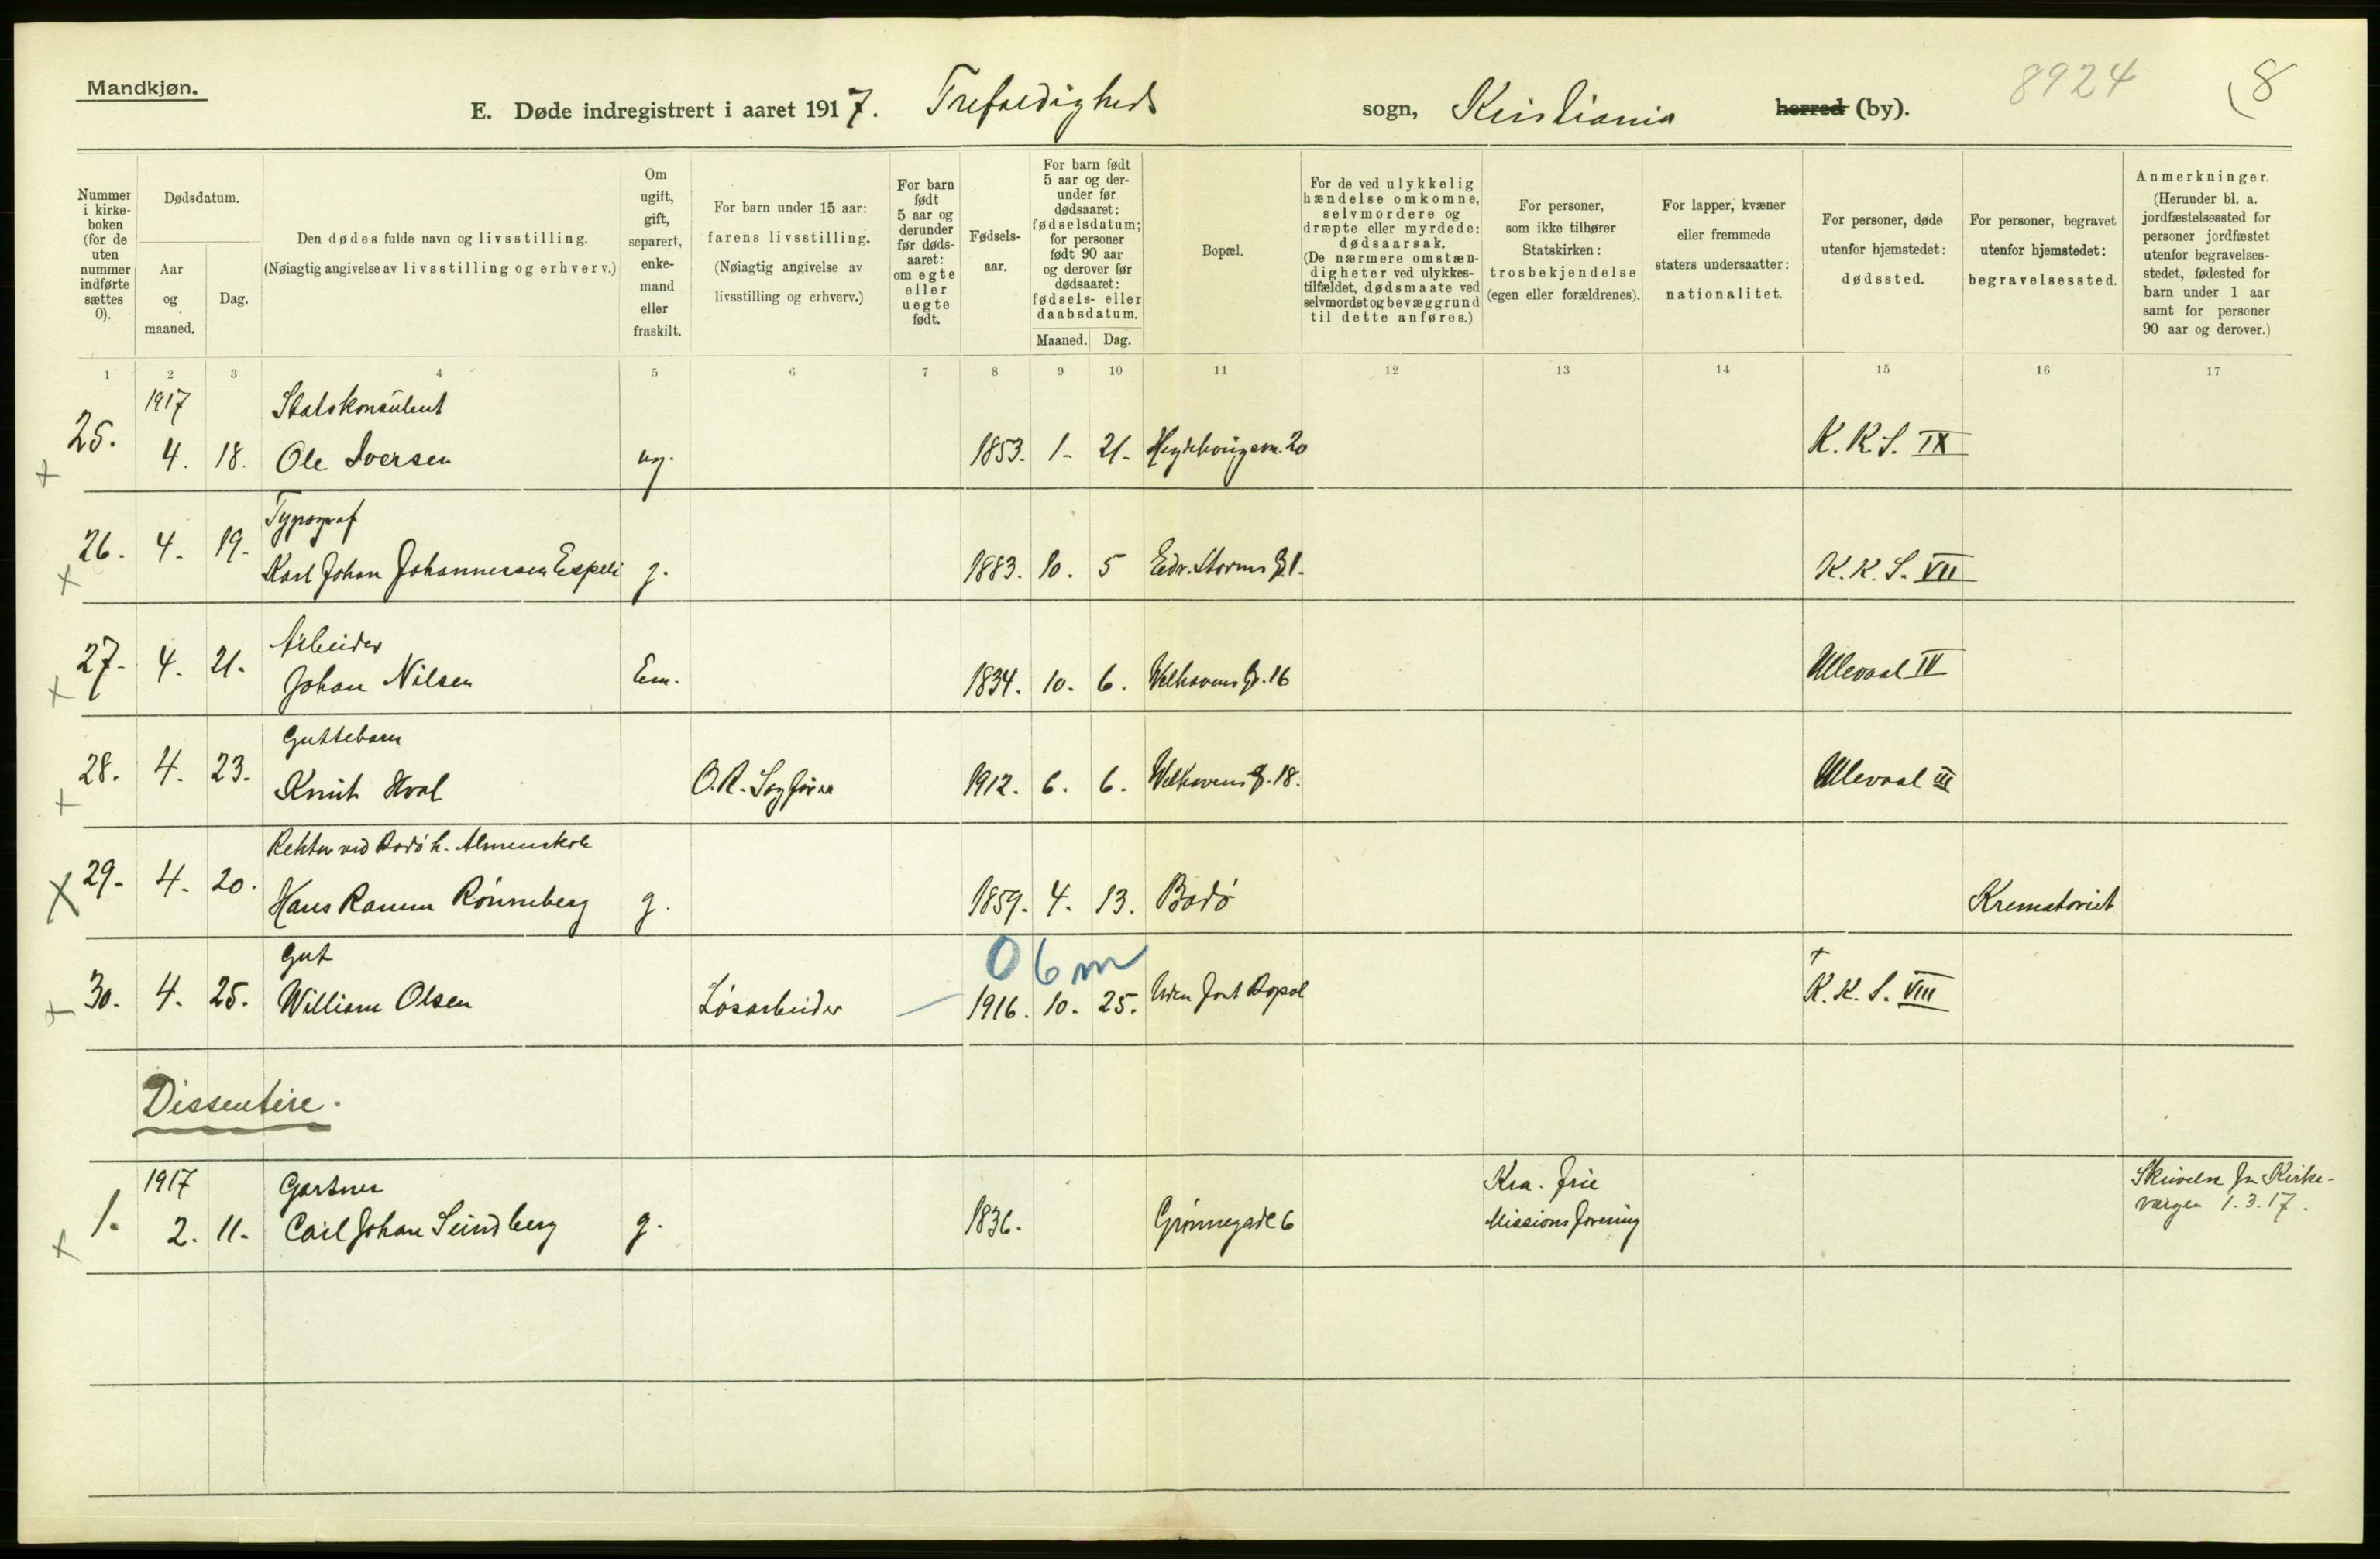 Mandkjøn.
E. Døde indregistrert i aaret 1917. Trefoldigheds sogn, Kristiania herred (by).
8924
8
Nummer i kirke-boken (for de uten nummer indførte sættes 0).
Dødsdatum.
Aar og maaned.
Dag.
Den dødes fulde navn og livsstilling.
(Nøiagtig angivelse av livsstilling og erhverv.)
Om ugift, gift, separert, enke-mand eller fraskilt.
For barn under 15 aar: farens livsstilling.
(Nøiagtig angivelse av livsstilling og erhverv.)
For barn født 5 aar og derunder før døds-aaret: om egte eller uegte født.
Fødsels-aar.
For barn født 5 aar og der-under før dødsaaret: fødselsdatum; for personer født 90 aar og derover før dødsaaret: fødsels- eller daabsdatum.
Maaned. Dag.
Bopæl.
For de ved ulykkelig hændelse omkomne, selvmordere og dræpte eller myrdede: dødsaarsak.
(De nærmere omstæn-digheter ved ulykkes-tilfældet, dødsmaate ved selvmordet og bevæggrund til dette anføres.)
For personer, som ikke tilhører Statskirken: trosbekjendelse (egen eller forældrenes).
For lapper, kvæner eller fremmede staters undersaatter: nationalitet.
For personer, døde utenfor hjemstedet: dødssted.
For personer, begravet utenfor hjemstedet: begravelsessted.
Anmerkninger.
(Herunder bl. a. jordfæstelsessted for personer jordfæstet utenfor begravelses-stedet, fødested for barn under 1 aar samt for personer 90 aar og derover.)
1 2 3 4 5 6 7 8 9 10 11 12 13 14 15 16 17
1917 Statskonsulent
25. 4. 18. Ole Iversen ug. 1853. 1- 21- 20 K.K.S. IX
Typograf
26. 4. 19. Karl Johan Johannessen Espeli g. 1883. 10. 5 Edv. Storms g. 1. K.K.S. VII
Arbeider
27. 4. 21. Johan Nilsen Em. 1834. 10. 6. Welhavens g. 16 Ullevaal IV
Guttebarn
28. 4. 23. Knut Hval O.R. Sagfører 1912. 6. 6. Welhavens g. 18. Ullevaal III
Rektor ved Bodø h. Almenskole
29. 4. 20. Hans Ramm Rönneberg g. 1859. 4. 13. Bodö Krematoriet
0 6 m
Gut
30. 4. 25. William Olsen Løsarbeider 1916. 10. 25. Uten fast Bopæl K.K.S. VIII
Dissentere.
1917 Gartner Kra. frie Skrivelse fra Kirke-
1. 2. 11. Carl Johan Sundberg g. 1836. Grønnegade 6 Missionsforening vergen 1.3.17.